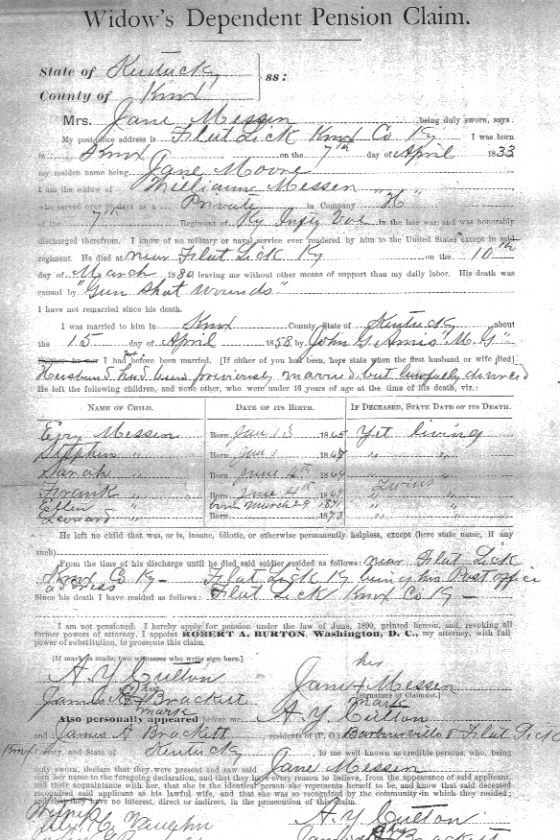 Widow's Dependent Pension Claim.
State of Kentucky
County of Knox
ss:
Mrs. Jane Messer being duly sworn, says:
My post office address is Flat Lick Knox Co Ky I was born
in Knox on the 7th day of April 1833
my maiden name being Jane Moore
I am the widow of William Messer
who served over 90 days as a Private in Company "H"
of the 7th Regiment of Ky Infty Vol in the late war, and was honorably
discharged therefrom. I know of no military or naval service ever rendered by him to the United States except in said
regiment. He died at near Flat Lick Ky on the 10th
day of March 1880 leaving me without other means of support than my daily labor. His death was
caused by "Gun Shot wounds"
I have not remarried since his death.
I was married to him in Knox County, State of Kentucky about
the 15 day of April 1858 by John G. Amis "M.G"
Neither he nor I had not before been married. [If either of you had been, here state when the first husband or wife died]
Husband had been previously married but lawfully divorced
He left the following children, and none other, who were under 16 years of age at the time of his death, viz.:
NAME OF CHILD. DATE OF ITS BIRTH. IF DECEASED, STATE DATE OF ITS DEATH.
Messer Born Jan 13 1865 Yet living
Stephen " Born Jan 1 " "
Sarah " Born June 4th 1869 " "
Frank " Born June 4th 1869 " Twins "
Ellen " born March 29 1871 " "
Leonard " Born 1873 " "
He left no child that was, or is, insane, idiotic, or otherwise permanently helpless, except (here state name, if any
such)
From the time of his discharge until he died said soldier resided as follows: near Flat Lick
Knox Co Ky - Flat Lick Ky being his Post office
address
Since his death I have resided as follows: Flat Lick Knox Co Ky -
I am not pensioned. I hereby apply for pension under the law of June, 1890, printed hereon, and, revoking all
former powers of attorney, I appoint ROBERT A. BURTON, Washington, D. C., my attorney, with full
power of substitution, to prosecute this claim.
(If mark is made, two witnesses who write sign here.)
A. Y. Culton
James A Brackett
his
mark
Jane X Messer
[Signature of Claimant.]
mark
Also personally appeared before me A. Y. Culton
and James A Brackett residents of (P. O.) Barbourville & Flat Lick
Knox County, and State of Kentucky to me well known as credible persons, who, being
duly sworn, declare that they were present and saw said Jane Messer
sign her name to the foregoing declaration, and that they have every reason to believe, from the appearance of said applicant,
and their acquaintance with her, that she is the identical person she represents herself to be, and know that said deceased
recognized said applicant as his lawful wife, and that she was so recognized by the community in which they resided;
that they have no interest, direct or indirect, in the prosecution of this claim.
Vaughn
A. Y. Culton
Brackett